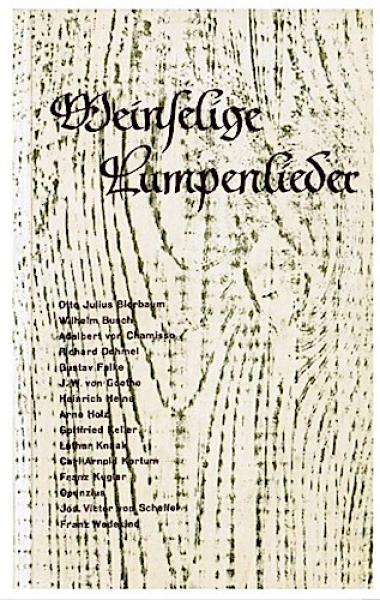 Weinselige
Lumpenlieder
Otto Julius Bierbaum
Wilhelm Busch
Adalbert von Chamisso
Richard Dehmel
Gustav Falke
J. W. von Goethe
Heinrich Heine
Arno Holz
Gottfried Keller
Lothar Knaak
Carl Arnold Kortum
Franz Kugler
Opunzius
Jos. Victor von Scheffel
Franz Wedekind